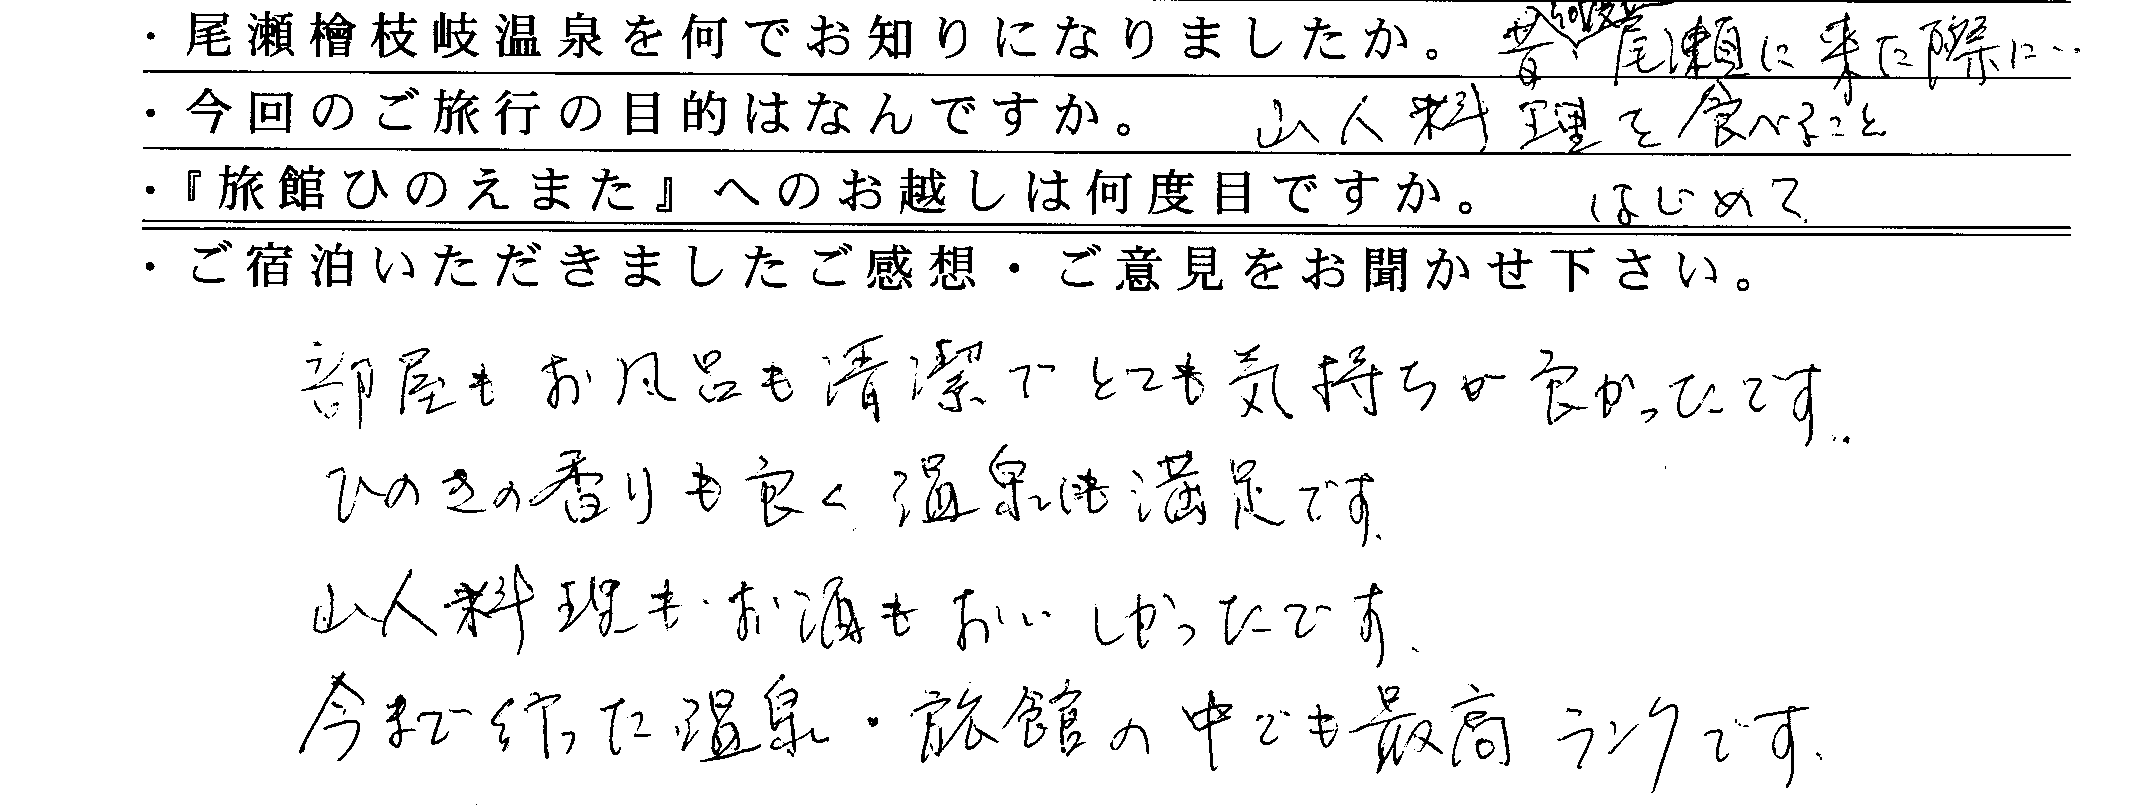 ・尾瀬檜枝岐温泉を何でお知りになりましたか。 昔、尾瀬に来た際に…
・今回のご旅行の目的はなんですか。 山人料理を食べること
・『旅館ひのえまた』へのお越しは何度目ですか。 はじめて
・ご宿泊いただきましたご感想・ご意見をお聞かせ下さい。
部屋もお風呂も清潔でとても気持ちが良かったです。
ひのきの香りも良く温泉も満足です。
山人料理も・お酒もおいしかったです。
今まで行った温泉・旅館の中でも最高ランクです。